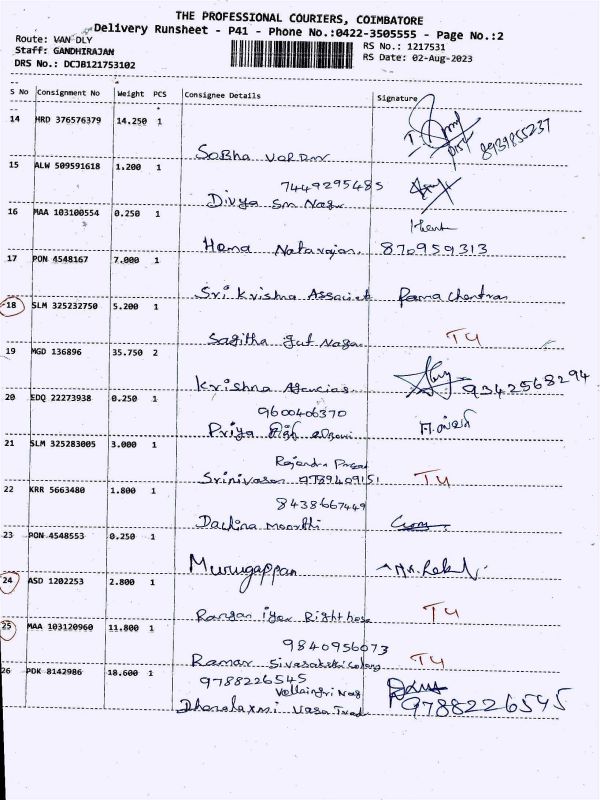 THE PROFESSIONAL COURIERS, COIMBATORE
Delivery Runsheet - P41 - Phone No.:0422-3505555 - Page No.:2
Route: VAN DLY
RS No.: 1217531
Staff: GANDHIRAJAN
RS Date: 02-Aug-2023
DRS No.: DCJB121753102
S No Consignment No Weight PCS Consignee Details Signature
14 HRD 376576379 14.250 1
8939855237
Sobha
15 ALW 509591618 1.200 1
7449295485
Divya Sm Nagar
16 MAA 103100554 0.250 1
Hema Natarajan. 870959313
17 PON 4548167 7.000 1
Sri Krishna Associat Rama Chandran
18 SLM 325232750 5.200 1
Sagitha Gut Naga T4
19 MGD 136896 35.750 2
Krishna Agencias. 9342568294
20 EDQ 22273938 0.250 1
9600406370
Priya
21 SLM 325283005 3.000 1
Rajendra Prasad
Srinivasan 9789409151 T4
22 KRR 5663480 1.800 1
8438667449
Dachina Moorthi
23 PON 4548553 0.250 1
Murugappan
24 ASD 1202253 2.800 1
Rangan iyer Right hosa T4
25 MAA 103120960 11.800 1
9840956073
Raman Sivasakthi Colony T4
26 PDK 8142986 18.600 1
9788226545
Vellaingri Nag
Dhanalaxmi Vasa Trad 9788226545